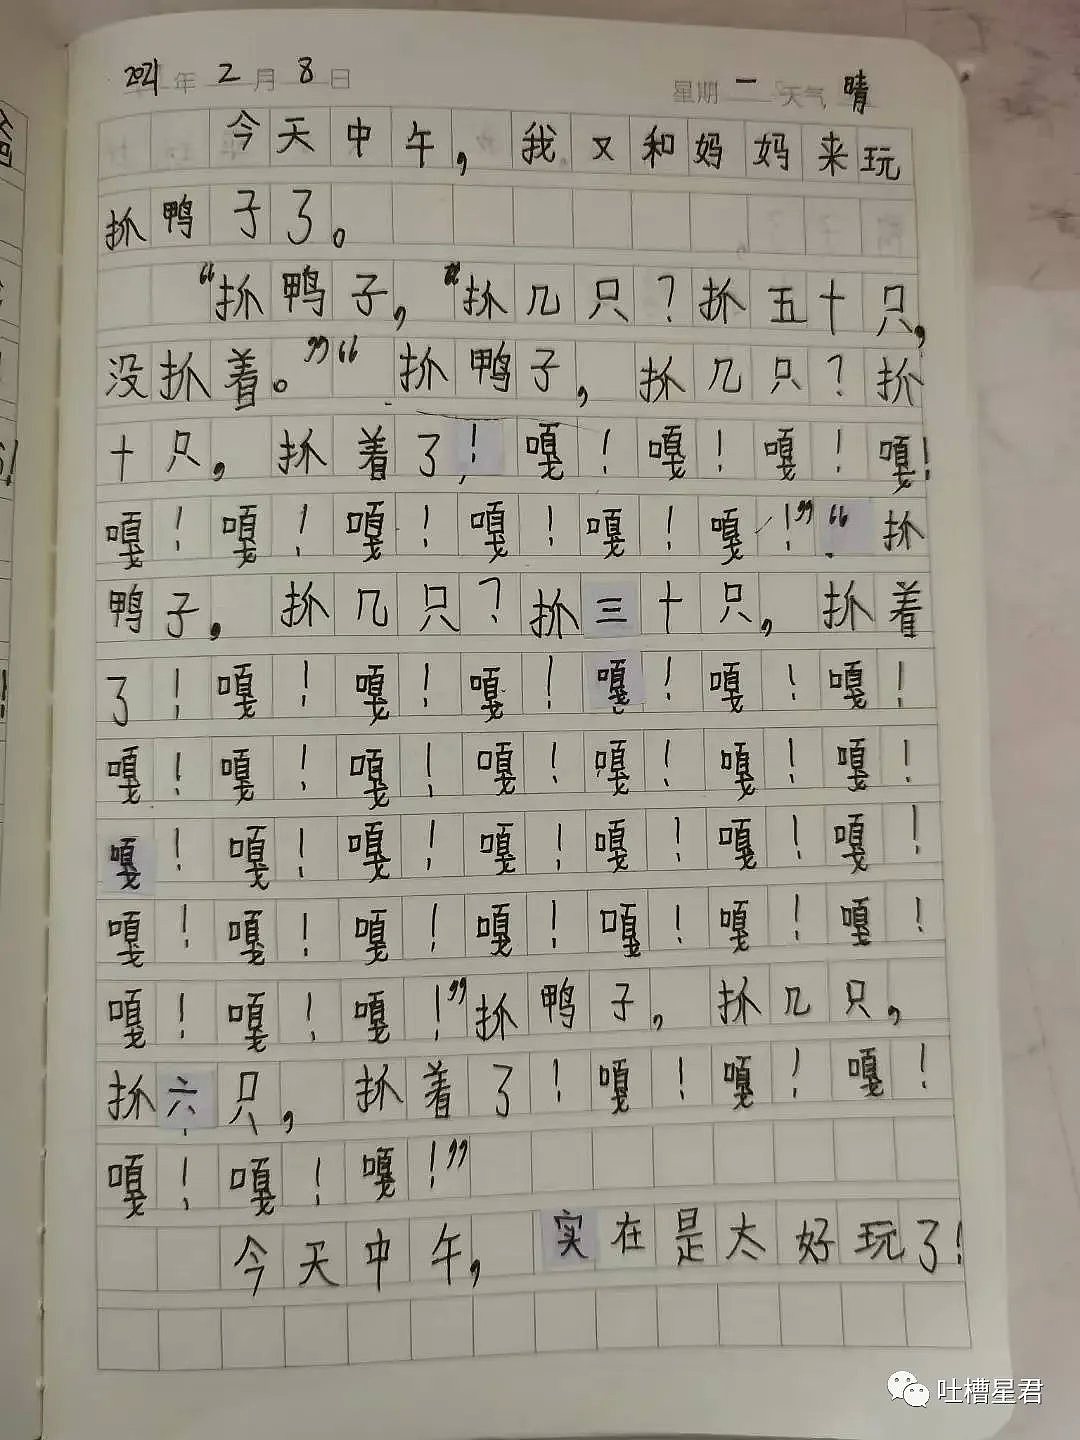 2021年2月8日 星期一 天气晴
今天中午，我又和妈妈来玩
抓鸭子了。
“抓鸭子，“抓几只？抓五十只，
没抓着。”“抓鸭子，抓几只？抓
十只，抓着了！嘎！嘎！嘎！嘎！
嘎！嘎！嘎！嘎！嘎！嘎！”“抓
鸭子，抓几只？抓三十只，抓着
了！嘎！嘎！嘎！嘎！嘎！嘎！
嘎！嘎！嘎！嘎！嘎！嘎！嘎！
嘎！嘎！嘎！嘎！嘎！嘎！嘎！
嘎！嘎！嘎！嘎！嘎！嘎！嘎！
嘎！嘎！嘎！”抓鸭子，抓几只，
抓六只，抓着了！嘎！嘎！嘎！
嘎！嘎！嘎！”
今天中午，实在是太好玩了！
吐槽星君